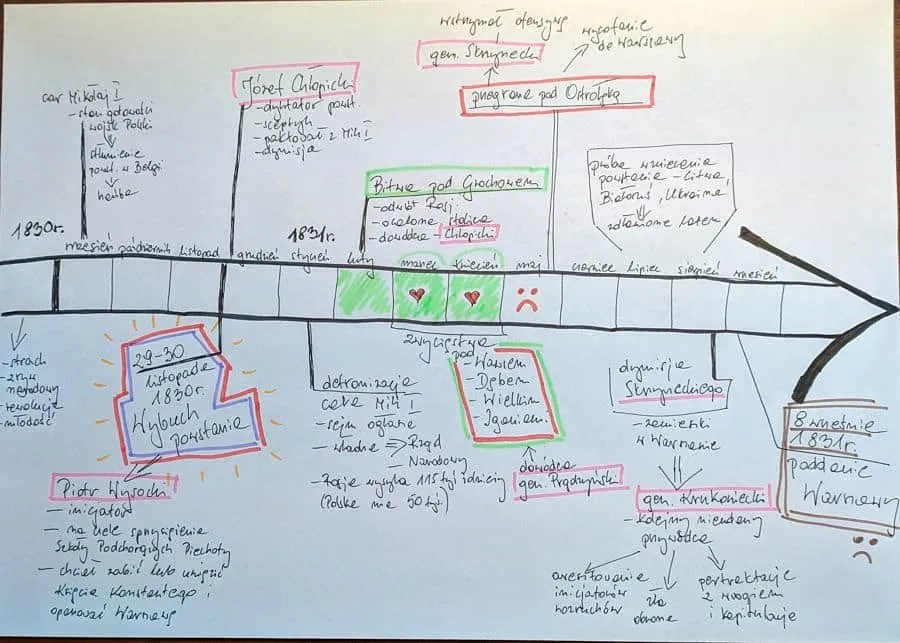 wstrzymał ofensywę
gen. Skrzynecki
wycofanie
do Warszawy
przegrana pod Ostrołęką
car Mikołaj I
- stan gotowości
wojsk Polski
stłumienie
powst. w Belgi
Józef Chłopicki
- dyktator powst.
- sceptyk
- paktował z Mik I
- dymisja
Bitwa pod Grochowem
- odwrót Rosj.
- ocalona stolica
- dowódca - Chłopicki
próba wzniecenia
powstania - Litwa,
Białoruś, Ukraina
zdławione latem
1830r.
wrzesień październik listopad grudzień
1831r.
styczeń luty marzec kwiecień maj czerwiec lipiec sierpień wrzesień
- strach
- zryw
narodowy
- rewolucja
- młodość
29-30
listopada
1830r.
Wybuch
powstania
Piotr Wysocki
- inicjator
- na czele sprzysiężenia
Szkoły Podchorążych Piechoty
- chciał zabić lub uwięzić
Księcia Konstantego i
opanować Warszawę
detronizacja
cara Mik I
- sejm ogłasza
- władza => Rząd
Narodowy
- Rosja wysyła 115 tyś żołnierzy
(Polska ma 50 tyś.)
zwycięstwa
pod
- Wawrem
- Dębem
- Wielkim
- Iganiami
dowódca
gen. Prądzyński
dymisja
Skrzyneckiego
- zamieszki
w Warszawie
gen. Krukowiecki
- kolejny nieudany
przywódca
aresztowanie
inicjatorów
rozruchów
zła
obrona
pertraktacje
z wrogiem
i kapitulacja
8 wrześnie
1831r.
poddanie
Warszawy